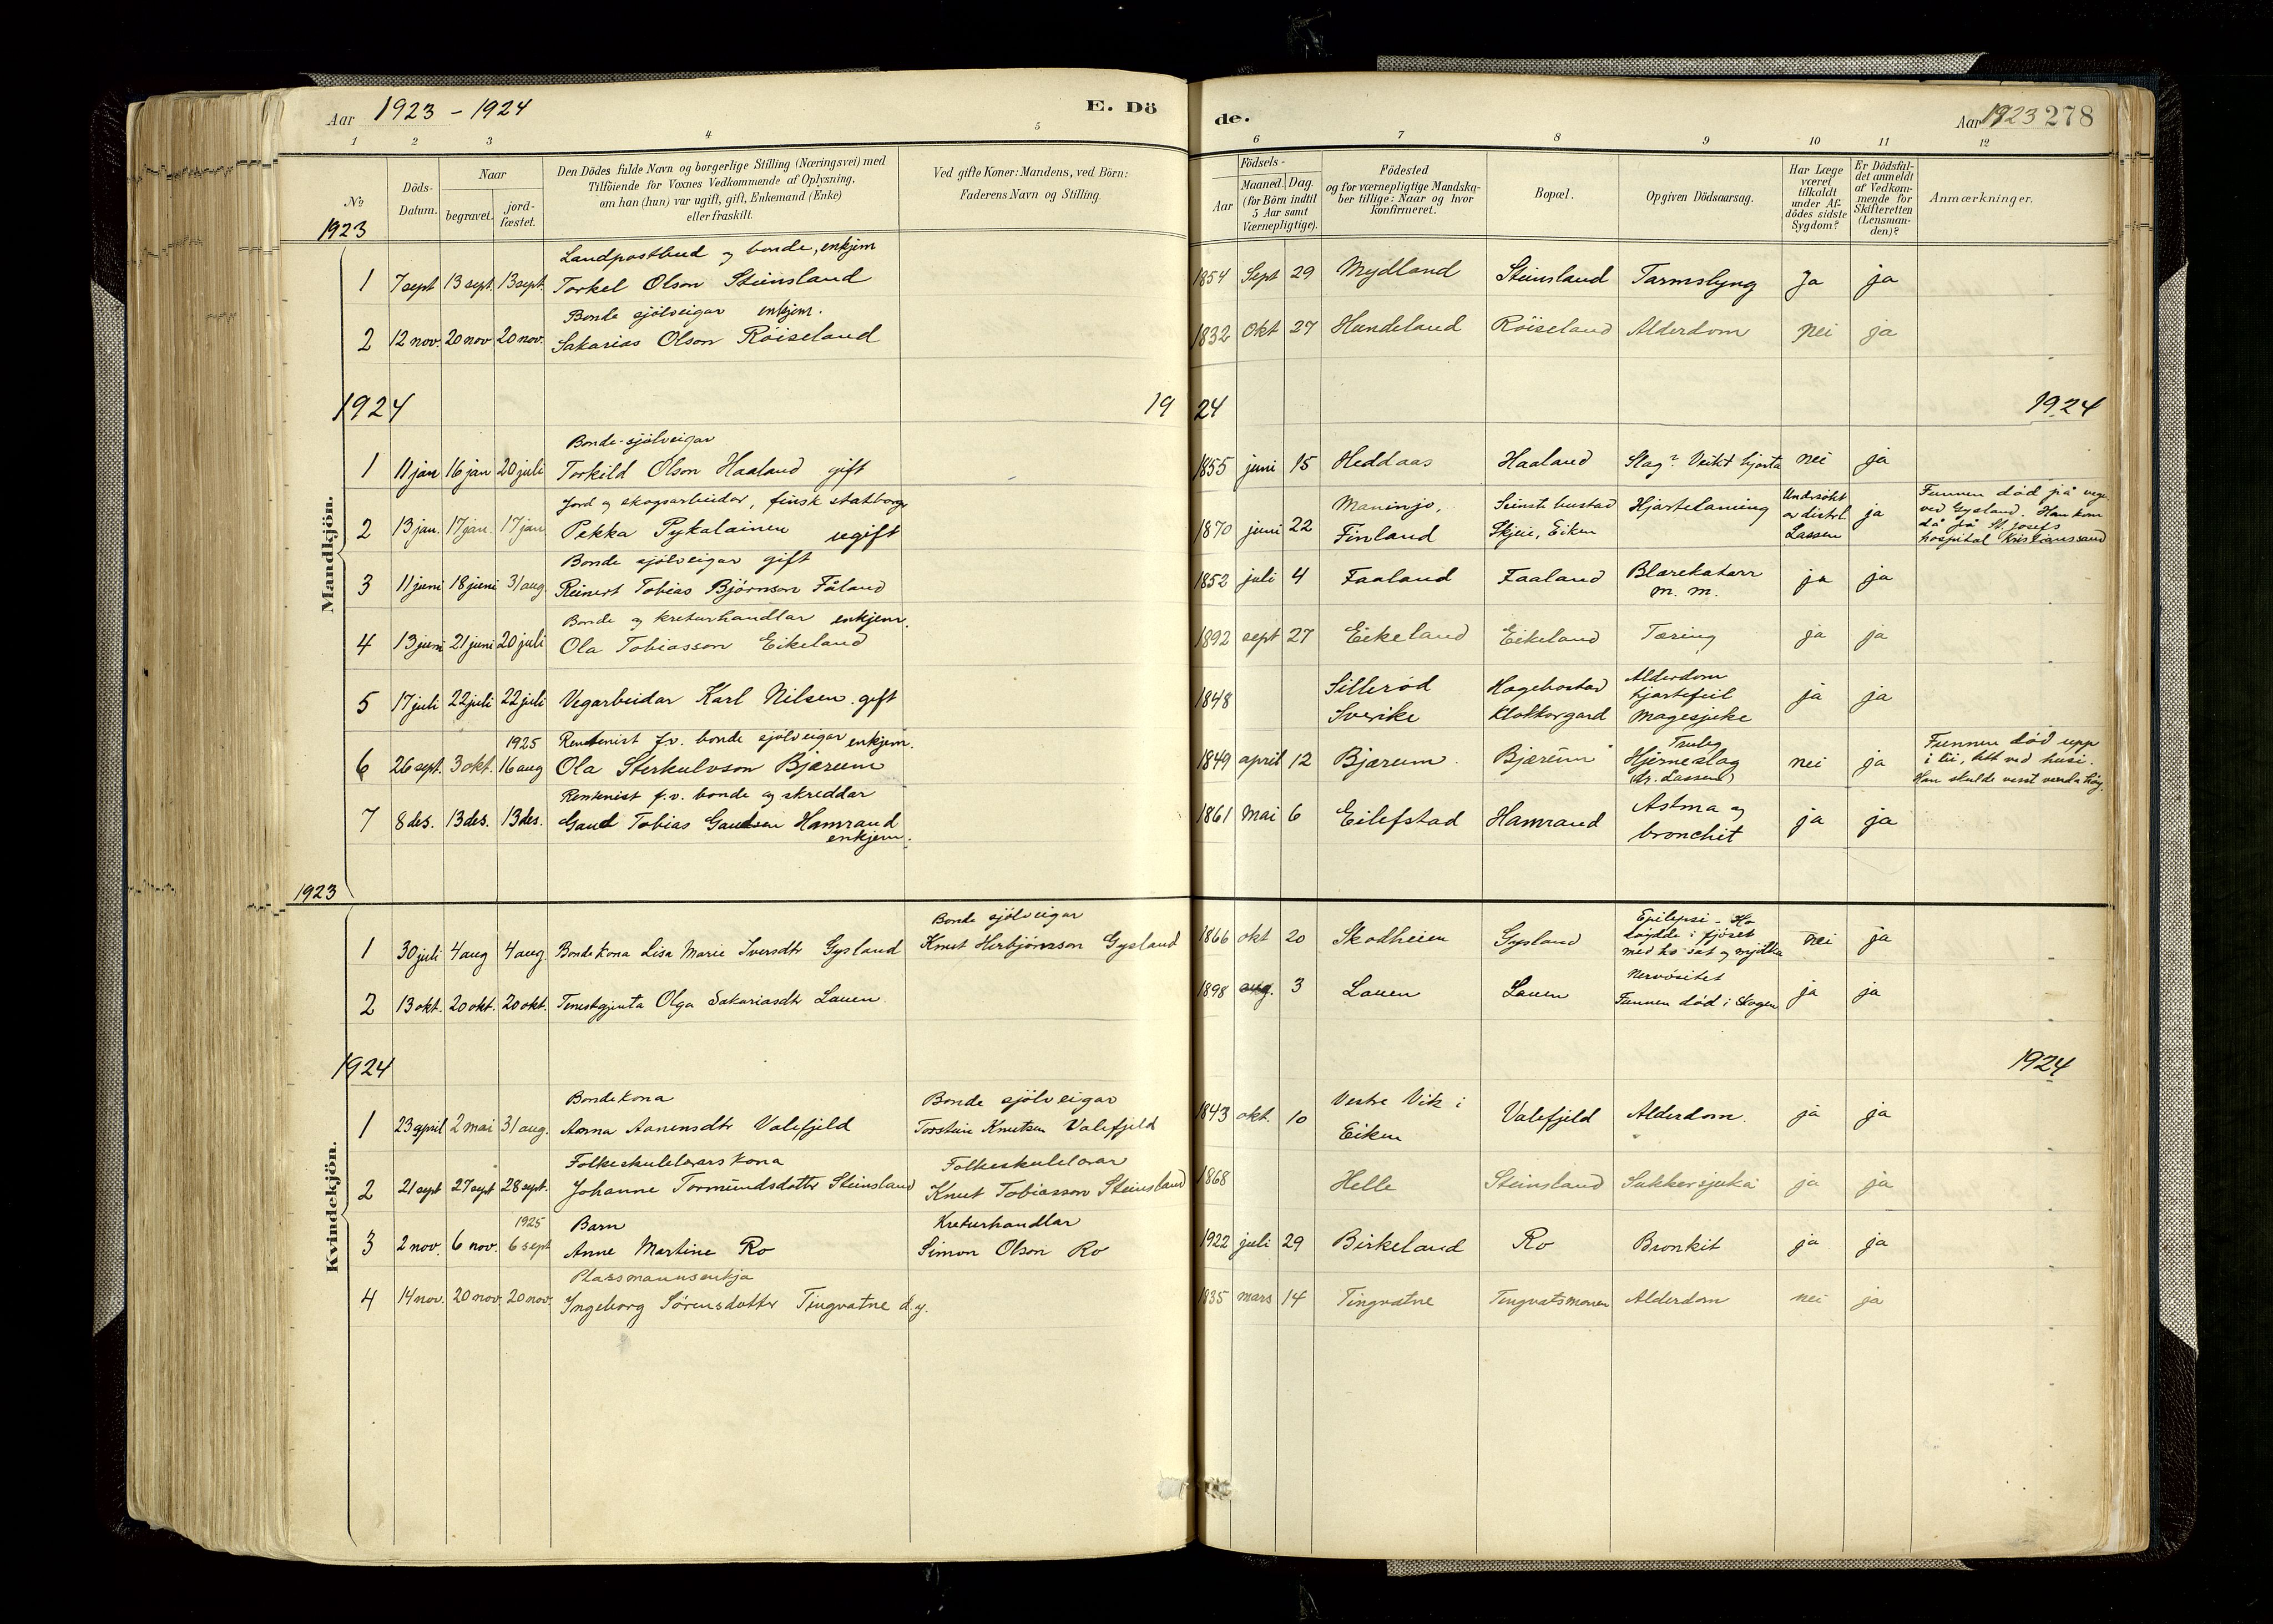 Aar 1923 - 1924
E. Dö
de.
Aar 1923 278
1 2 3 4 5 6 7 8 9 10 11 12
№
Döds-Datum.
Naar
begravet.
jord-fæstet.
Den Dödes fulde Navn og borgerlige Stilling (Næringsvei) med
Tilföiende for Voxnes Vedkommende af Oplysning,
om han (hun) var ugift, gift, Enkemand (Enke)
eller fraskilt.
Ved gifte Koner: Mandens, ved Börn:
Faderens Navn og Stilling.
Födsels-
Aar
Maaned. Dag.
(for Börn indtil
5 Aar samt
Værnepligtige).
Födested
og for værnepligtige Mandska-
ber tillige: Naar og hvor
konfirmeret.
Bopæl.
Opgiven Dödsaarsag.
Har Læge
været
tilkaldt
under Af-
dödes sidste
Sygdom?
Er Dödsfal-
det anmeldt
af Vedkom-
mende for
Skifteretten
(Lensman-
den)?
Anmærkninger.
Mandkjön.
1923
Landpostbud og bonde, enkjem
1 7 sept 13 sept. 13 sept. Torkel Olson Steinsland 1854 Sept 29 Mydland Steinsland Tarmslyng Ja ja
Bonde sjölveigar enkjem.
2 12 nov. 20 nov 20 nov. Sakarias Olson Röiseland 1832 Okt 27 Hundeland Röiseland Alderdom nei ja
1924 19 24 1924
Bonde-sjölveigar
1 11 jan 16 jan 20 juli Torkild Olson Haaland gift 1855 juni 15 Heddaas Haaland Slag? Veikt hjarta nei ja
Jord og skogsarbeidar, finsk statborg.
2 13 jan. 17 jan. 17 jan Pekka Pykalainen ugift 1870 juni 22 Maninjo, Finland Seinst bustad Skjeie, Eiken Hjartelaming Undersökt av distrl. Lassen ja
Funnen död på veg.
ved Gysland. Han kom
då frå St. Josefs
hospital Kristianssand
Bonde sjölveigar gift
3 11 juni 18 juni 31 aug. Reinert Tobias Björnson Fåland 1852 juli 4 Faaland Faaland Blærekatarr m. m. ja ja
Bonde og kreturhandlar enkjem.
4 13 juni 21 juni 20 juli Ola Tobiasson Eikeland 1892 sept 27 Eikeland Eikeland Tæring ja ja
5 17 juli 22 juli 22 juli Vegarbeidar Karl Nilsen. gift 1848 Silleröd Sverike Hægebostad Klokkargard Alderdom hjartefeil magesjuke ja ja
1925 Rentenist fv. bonde sjölveigar enkjem.
6 26 sept. 3 okt. 16 aug Ola Sterkulvson Bjærum 1849 april 12 Bjærum Bjærum Truleg Hjerneslag (dr. Lassen) nei ja
Funnen död upp
i lii, tett ved husi.
Han skulde vest venda höy.
Rentenist f.v. bonde og skreddar
7 8 des. 13 des. 13 des. Gaud Tobias Gaudson Hamrand enkjem. 1861 Mai 6 Eilefstad Hamrand Astma og bronchit ja ja
Kvindekjön.
1923
Bonde sjölveigar
1 30 juli 4 aug 4 aug. Bondekona Lisa Marie Iversdtr Gysland Knut Herbjörnson Gysland 1866 okt 20 Skodheien Gysland Epilepsi - Ho döydde i fjöset med ho sat og mjölka nei ja
2 13 okt. 20 okt. 20 okt. Tenestgjenta Olga Sakariasdtr Lauen 1898 aug. 3 Lauen Lauen Nervösitet Funnen död i skogen ja ja
1924 1924
Bondekona Bonde sjölveigar
1 23 april 2 mai 31 aug. Anna Aanensdtr Valefjeld Torstein Knutsen Valefjeld 1843 okt. 10 Vestre Vik i Eiken Valefjeld Alderdom. ja ja
Folkeskulelærarskona Folkeskulelærar
2 21 sept 27 sept 28 sept. Johanne Tormundsdotter Steinsland Knut Tobiasson Steinsland 1868 Helle Steinsland Sukkersjuka ja ja
1925 Barn Kreturhandlar
3 2 nov. 6 nov. 6 sept Anne Martine Ro Simon Olson Ro 1922 juli 29 Birkeland Ro Bronkit ja ja
Plassmannsenkja
4 14 nov. 20 nov. 20 nov. Ingeborg Sörensdotter Tingvatne d.y. 1835 mars 14 Tingvatne Tingvatsmoen Alderdom nei ja